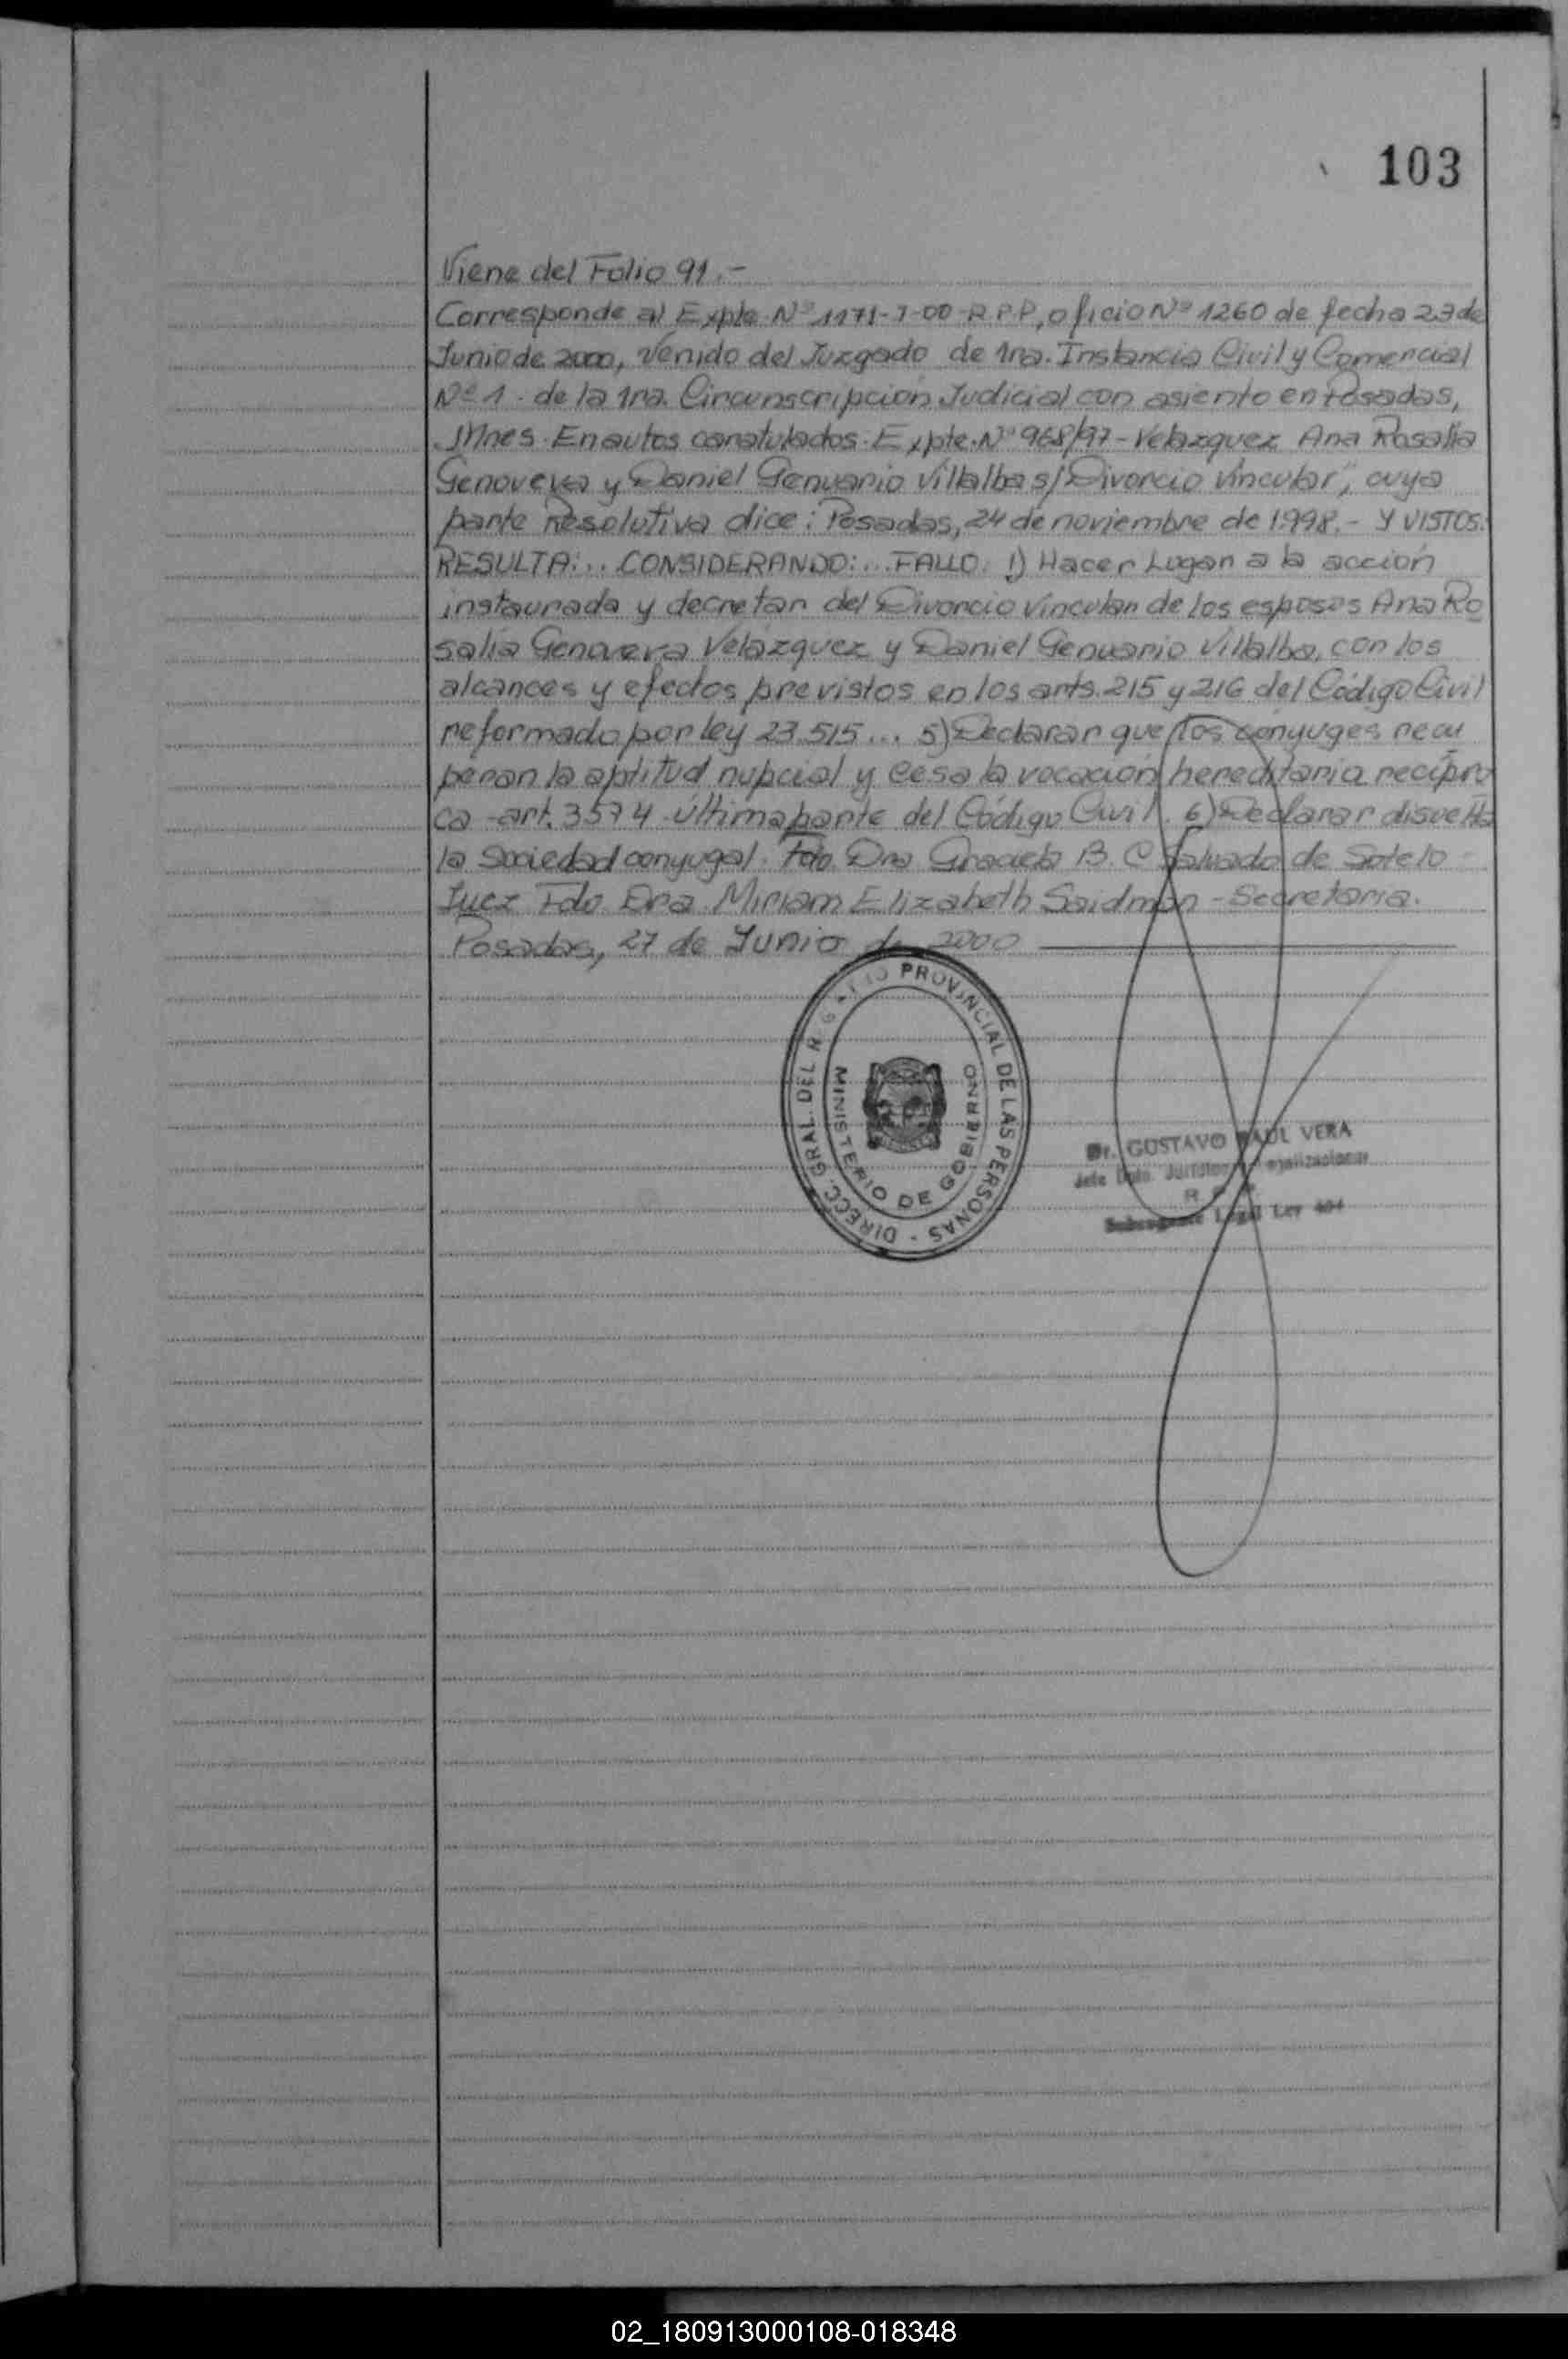 103
Viene del Folio 91.-
Corresponde al Expte. Nº 1171-J-00-R.P.P, oficio Nº 1260 de fecha 23 de
Junio de 2000, venido del Juzgado de 1ra. Instancia Civil y Comercial
Nº 1. de la 1ra. Circunscripción Judicial con asiento en Posadas,
Mnes. En autos caratulados. Expte. Nº 968/97 - Velazquez Ana Rosalía
Genoveva y Daniel Genuario Villalba s/Divorcio Vincular", cuya
parte Resolutiva dice: Posadas, 24 de noviembre de 1.998.- Y VISTOS:
RESULTA:... CONSIDERANDO:... FALLO: 1) Hacer Lugar a la acción
instaurada y decretar del Divorcio Vincular de los esposos Ana Ro
salía Genoveva Velázquez y Daniel Genuario Villalba, con los
alcances y efectos previstos en los arts. 215 y 216 del Código Civil
reformado por ley 23.515... 5) Declarar que los cónyuges recu
peran la aptitud nupcial y cesa la vocación hereditaria recípro
ca -art. 3574 última parte del Código Civil. 6) Declarar disuelta
la Sociedad conyugal. Fdo. Dra. Graciela B. C Salvado de Sotelo -
Juez Fdo Dra. Miriam Elizabeth Saidman - Secretaria.
Posadas, 27 de Junio de 2000
DIRECC. GRAL. DEL REGISTRO PROVINCIAL DE LAS PERSONAS -
MINISTERIO DE GOBIERNO
Dr. GUSTAVO RAUL VERA
Jefe Dpto.
Legal Ley 404
02_180913000108-018348